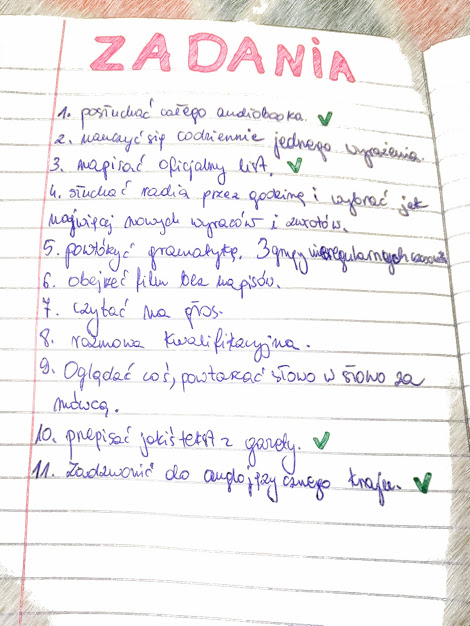 ZADANIA
1. posłuchać całego audiobooka.
2. nauczyć się codziennie jednego wyrażenia.
3. napisać oficjalny list.
4. słuchać radia przez godzinę i wybrać jak
najwięcej nowych wyrazów i zwrotów.
5. powtórzyć gramatykę. 3 grupy nieregularnych czasown
6. obejrzeć film bez napisów.
7. czytać na głos.
8. rozmowa kwalifikacyjna.
9. Oglądać coś, powtarzać słowo w słowo za
mówcą.
10. przepisać jakiś tekst z gazety.
11. zadzwonić do anglojęzycznego kraju.